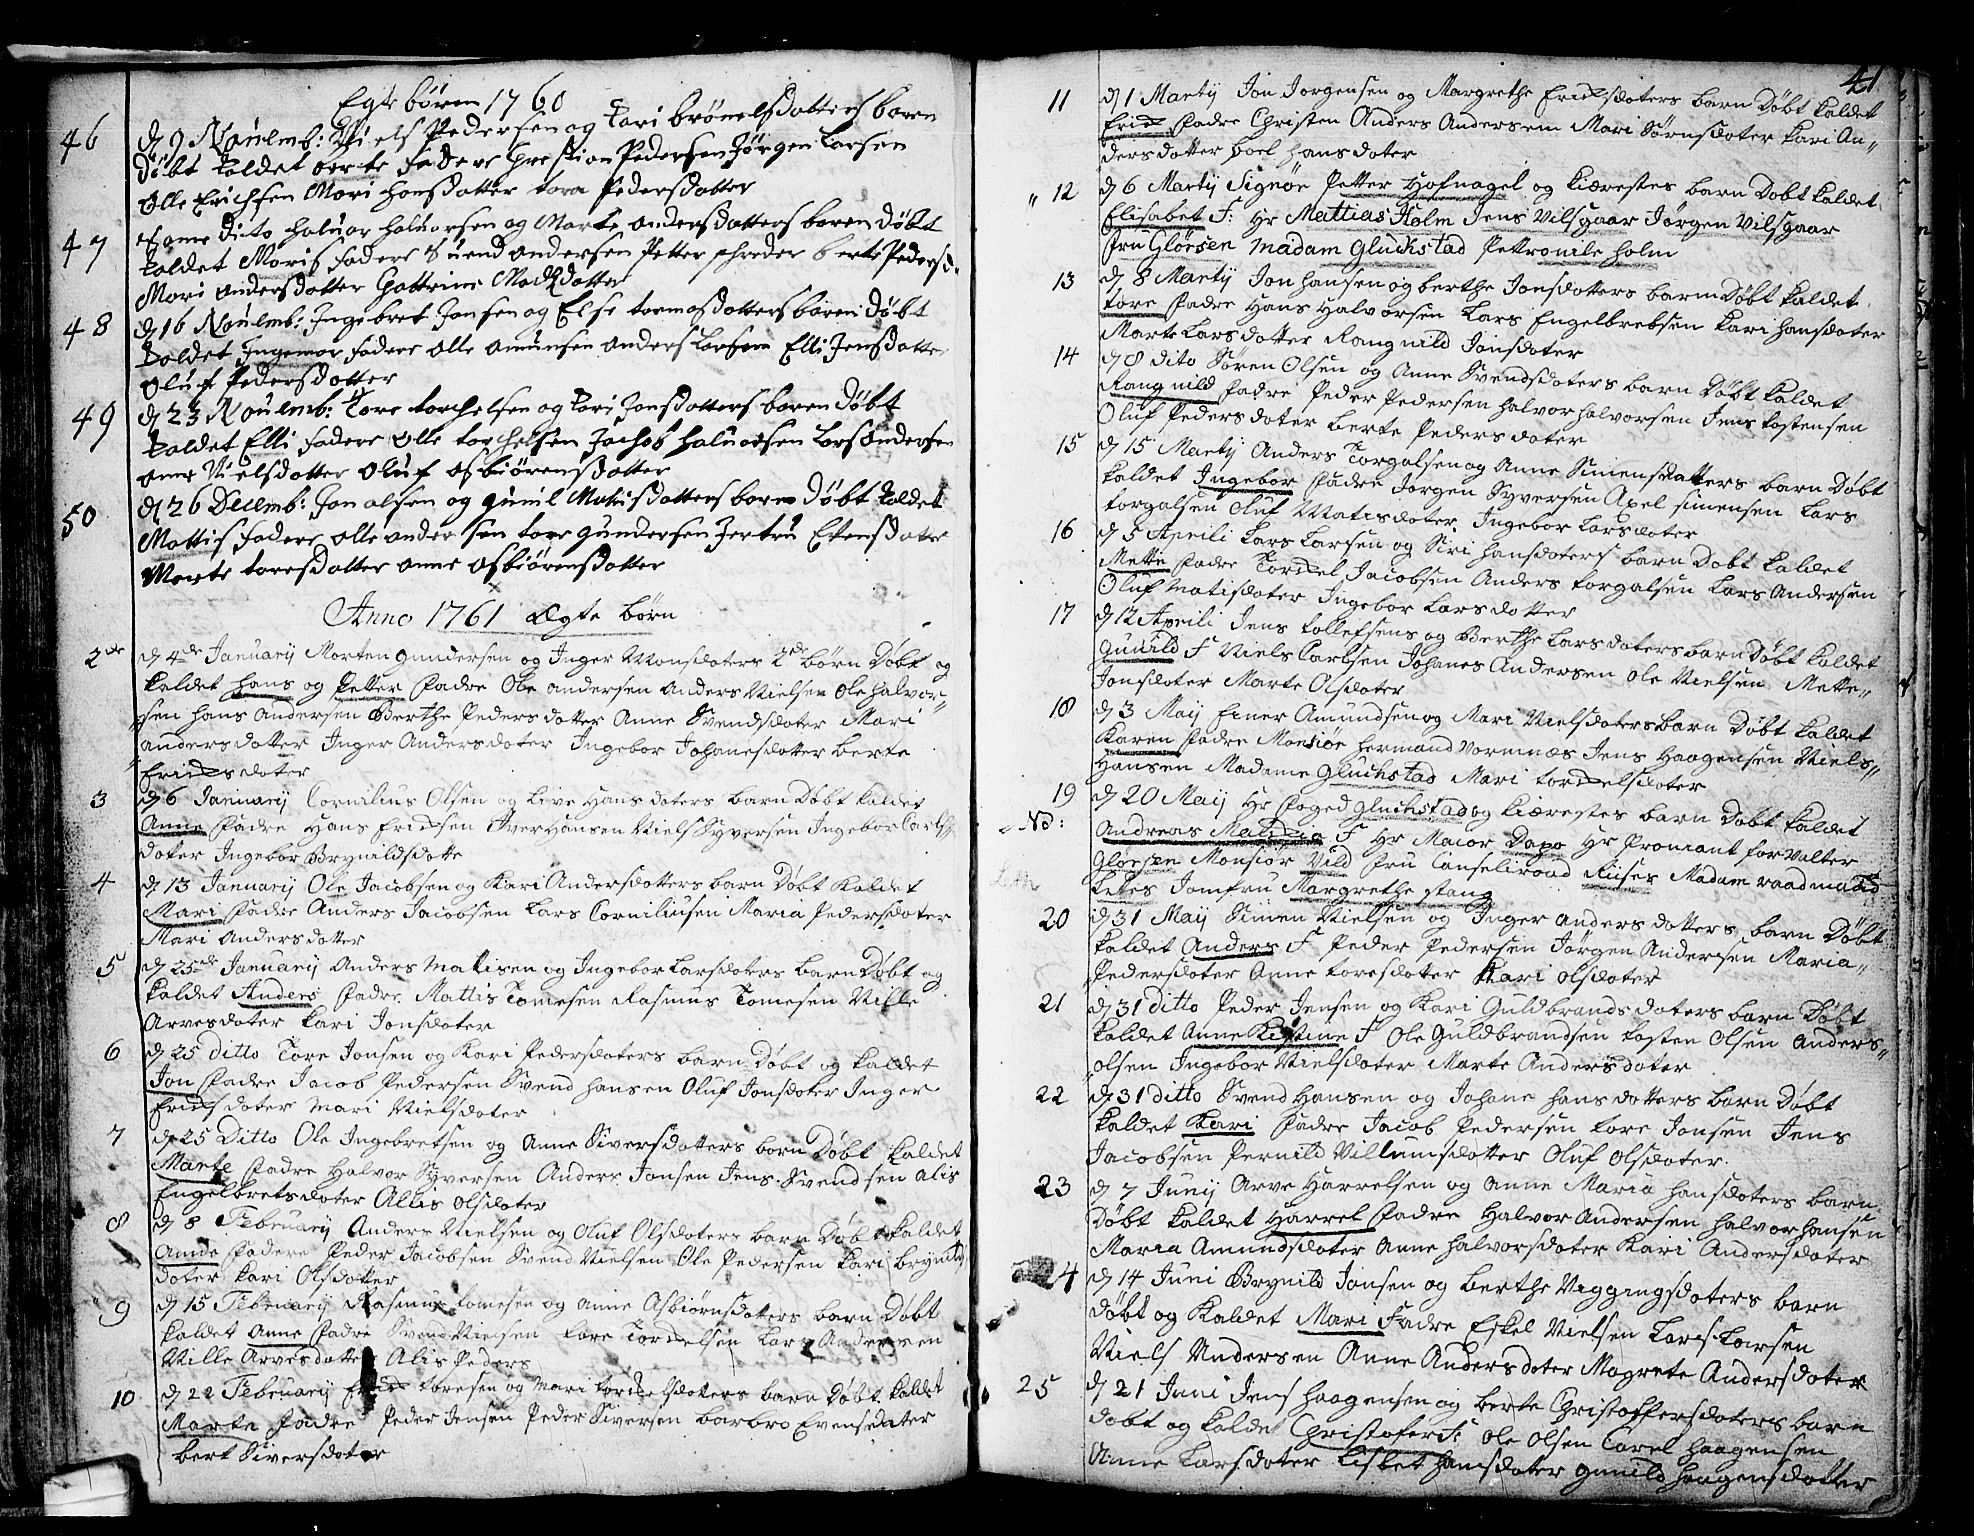 Egte børen 1760
46 d 9 Novemb: Niels Pedersen og Kari brønelsdatters baren
døbt kaldet berte faderre Chrestion Pedersen Jørgen Larsen
Olle Erichsen Mari Hansdatter tora Pedersdatter
47 Same dito Haluor Haluorsen og Marte andersdatters baren døbt
kaldet Moris fadere Suend andersen Petter schreder berte Pedersd.
Mari andersdatter Cattrine Madsdatter
48 d 16 Novemb: Ingebret Jansen og Else tomosdatters baren døbt
kaldet Ingemor fadere olle amunsen anders larsen Elli Jensdatter
oluf Pedersdatter
49 d 23 Novemb: Tore torchelsen og Kari Jonsdatters baren døbt
kaldet Elli fadere olle torchelsen Jachob Haluorsen Lars andersen
anne Nielsdatter oluf asbiørensdatter
50 d 26 Decemb: Jon olsen og gunil Matisdatters baren døbt kaldet
Mattis fadere olle andersen tore gundersen Jertru Etensdatter
Marte toresdatter anne asbiørensdatter
Anno 1761 Ægte børn
2de d 4de Januarij Morten gundersen og Inger Monsdoters 2de børn Døbt og
kaldet Hans og Petter Fadre Ole andersen Anders Nielsen Ole Halvor-
sen Hans Andersen Berthe Pedersdotter Anne Svendsdoter Mari
andersdotter Inger Andersdoter Ingebor Johanesdotter Berte
Erichsdoter
3 d 6 Januarij Cornilius Olsen og Live Hansdoters barn Døbt kaldet
Anne Fadre Hans Erichsen Iver Hansen Niels Syversen Ingebor Carls
doter Ingebor Brynildsdotte
4 d 13 Januarij Ole Jacobsen og Kari Andersdotters barn Døbt Kaldet
Mari Fadre Anders Jacobsen Lars Corniliusen Maria Pedersdoter
Mari Andersdotter
5 d 25de Januarij Anders Matisen og Ingebor Larsdoters barn Døbt og
kaldet Anders Fadre Mattis Tomesen Rasmus Tomesen Nille
Arvesdoter Kari Jonsdoter
6 d 25 ditto Tore Jonsen og Kari Pedersdoters barn Døbt og kaldet
Jon Fadre Jacob Pedersen Svend Hansen Oluf Jonsdoter Inger
Erichsdoter Mari Nielsdoter
7 d 25 Ditto Ole Ingebretsen og Anne Siversdotters born Døbt kaldet
Marte Fadre Halvor Syversen Anders Jonsen Jens Svendsen Alis
Engelbretsdoter Allis Olsdoter
8 d 8 Februarij Anders Nielsen og Oluf Olsdoters barn Døbt kaldet
Anne Fadere Peder Jacobsen Svend Nielsen Ole Pedersen Kari Brynilds
doter Kari Olsdotter
9 d 15 Februarij Rasmus Tomesen og Anne Asbiørnsdotters barn Døbt
kaldet Anne Fadre Svend Nielsen Tore Torchelsen Lars Andersen
Nille Arvesdotter Alis Peders
10 d 22 Februarij Erich Toresen og Mari Torchelsdoters barn Døbt kaldet
Marte Fadre Peder Jensen Peder Siversen Barbro Evensdoter
Bert Siversdoter
41
11 d 1 Martij Jon Jorgensen og Margrethe Erichsdoters barn Døbt kaldet
Erich Fadre Christen Anders Andersen Mari Sørnsdoter Kari An-
dersdotter Boel Hansdoter
12 d 6 Martij Signøe Petter Hofnagel og kiærestes barn Dobt kaldet
Elisabet F: Hr Mattias Holm Jens Vilsgaar Jørgen Vilsgaar
Fru Glørsen Madam Gluchstad Pettronile Holm
13 d 8 Martij Jon Hansen og berthe Jonsdotters barn Døbt kaldet
Tore Fadre Hans Halvorsen Lars Engelbretsen Kari Hansdoter
Marte Larsdotter Rangnild Jonsdoter
14 d 8 dito Søren Olsen og Anne Svendsdoters barn Døbt kaldet
Rangnild Fadre Peder Pedersen Halvor Halvorsen Jens Tostensen
Oluf Pedersdoter Berte Pedersdoter
15 d 15 Martij Anders Torgalsen og Anne Simensdatters barn Døbt
kaldet Ingebor Fadre Jorgen Syversen Axel Simensen Lars
Torgalsen Oluf Matisdoter Ingebor Larsdoter
16 d 5 Aprili Lars Larsen og Siri Hansdoters barn Dobt kaldet
Mette Fadre Torchel Jacobsen Anders Torgalsen Lars Andersen
Oluf Matisdoter Ingebor Larsdotter
17 d 12 Aprili Jens Tollefsens og Berthe Larsdoters barn Døbt kaldet
Gunild F Niels Carlsen Johanes Andersen Ole Nielsen Mette-
Jonsdoter Marte Olsdoter
18 d 3 Maij Einer Amundsen og Mari Nielsdoters barn Døbt kaldet
Karen Fadre Monsiøe Hermand Vormnæs Jens Haagensen Niels-
Hansen Madame Gluchstad Mari Torchelsdoter
19 d 20 Maij Hr Foged Gluchstad og kiærestes barn Døbt kaldet
Nd: Andreas Malichea F Hr Maior Dapo Hr Proviant forvalter
Glørsen Monsiør Vild Fru Canseliraad Riises Madam raadmand
Lches Jomfru Margrethe Stang
20 d 31 Maij Simen Nielsen og Inger Andersdotters barn Døbt
kaldet Anders F Peder Pedersen Jørgen Andersen Maria-
Pedersdoter Anne Toresdoter Kari Olsdoter
21 d 31 ditto Peder Jensen og Kari Guldbrandsdoters barn Døbt
kaldet Anne Kistine F Ole Guldbrandsen Tosten Olsen Anders
olsen Ingebor Nielsdoter Marte Andersdoter
22 d 31 ditto Svend Hansen og Johane Hansdotters barn Døbt
kaldet Kari Fadre Jacob Pedersen Tore Jonsen Jens
Jacobsen Pernild Villumsdotter Oluf Olsdoter.
23 d 7 Junij Arve Harrelsen og Anne Maria Hansdoters barn
Døbt kaldet Harrel Fadre Halvor Andersen Halvor Hansen
Maria Amundsdoter Anne Halvorsdoter Kari Andersdoter
24 d 14 Juni Brynild Jonsen og Berthe Viggingsdoters barn
døbt og kaldet Mari Fadre Eskel Nielsen Lars Larsen
Niels Andersen Anne Andersdoter Magrete Andersdoter
25 d 21 Juni Jens Haagensen og Berte Christoffersdoters barn
dobt og kaldet Christofer F: Ole Olsen Torel Haagensen
Anne Larsdoter Lisbet Hansdoter Gunild Haagensdotter